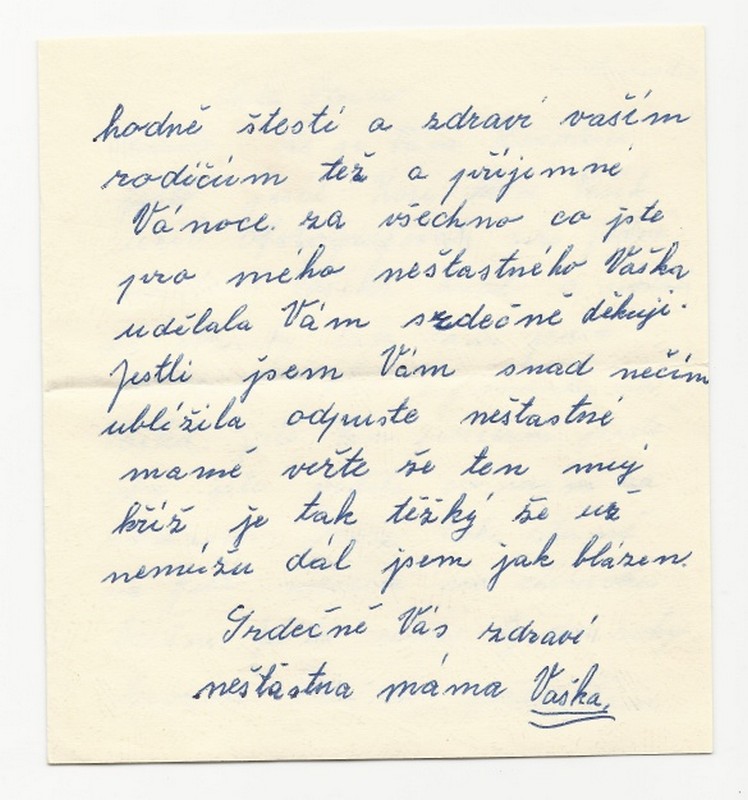 hodně štestí a zdraví vaším
rodičům též a příjemné
Vánoce. za všechno co jste
pro mého neštastného Vaška
udělala Vám srdečně děkuji.
Jestli jsem Vám snad nečím
ublížila odpuste neštastné
mamé veřte že ten muj
kříž je tak těžký že už
nemúžu dál jsem jak blázen.
Srdečně Vás zdraví
neštàstna máma Vaška.